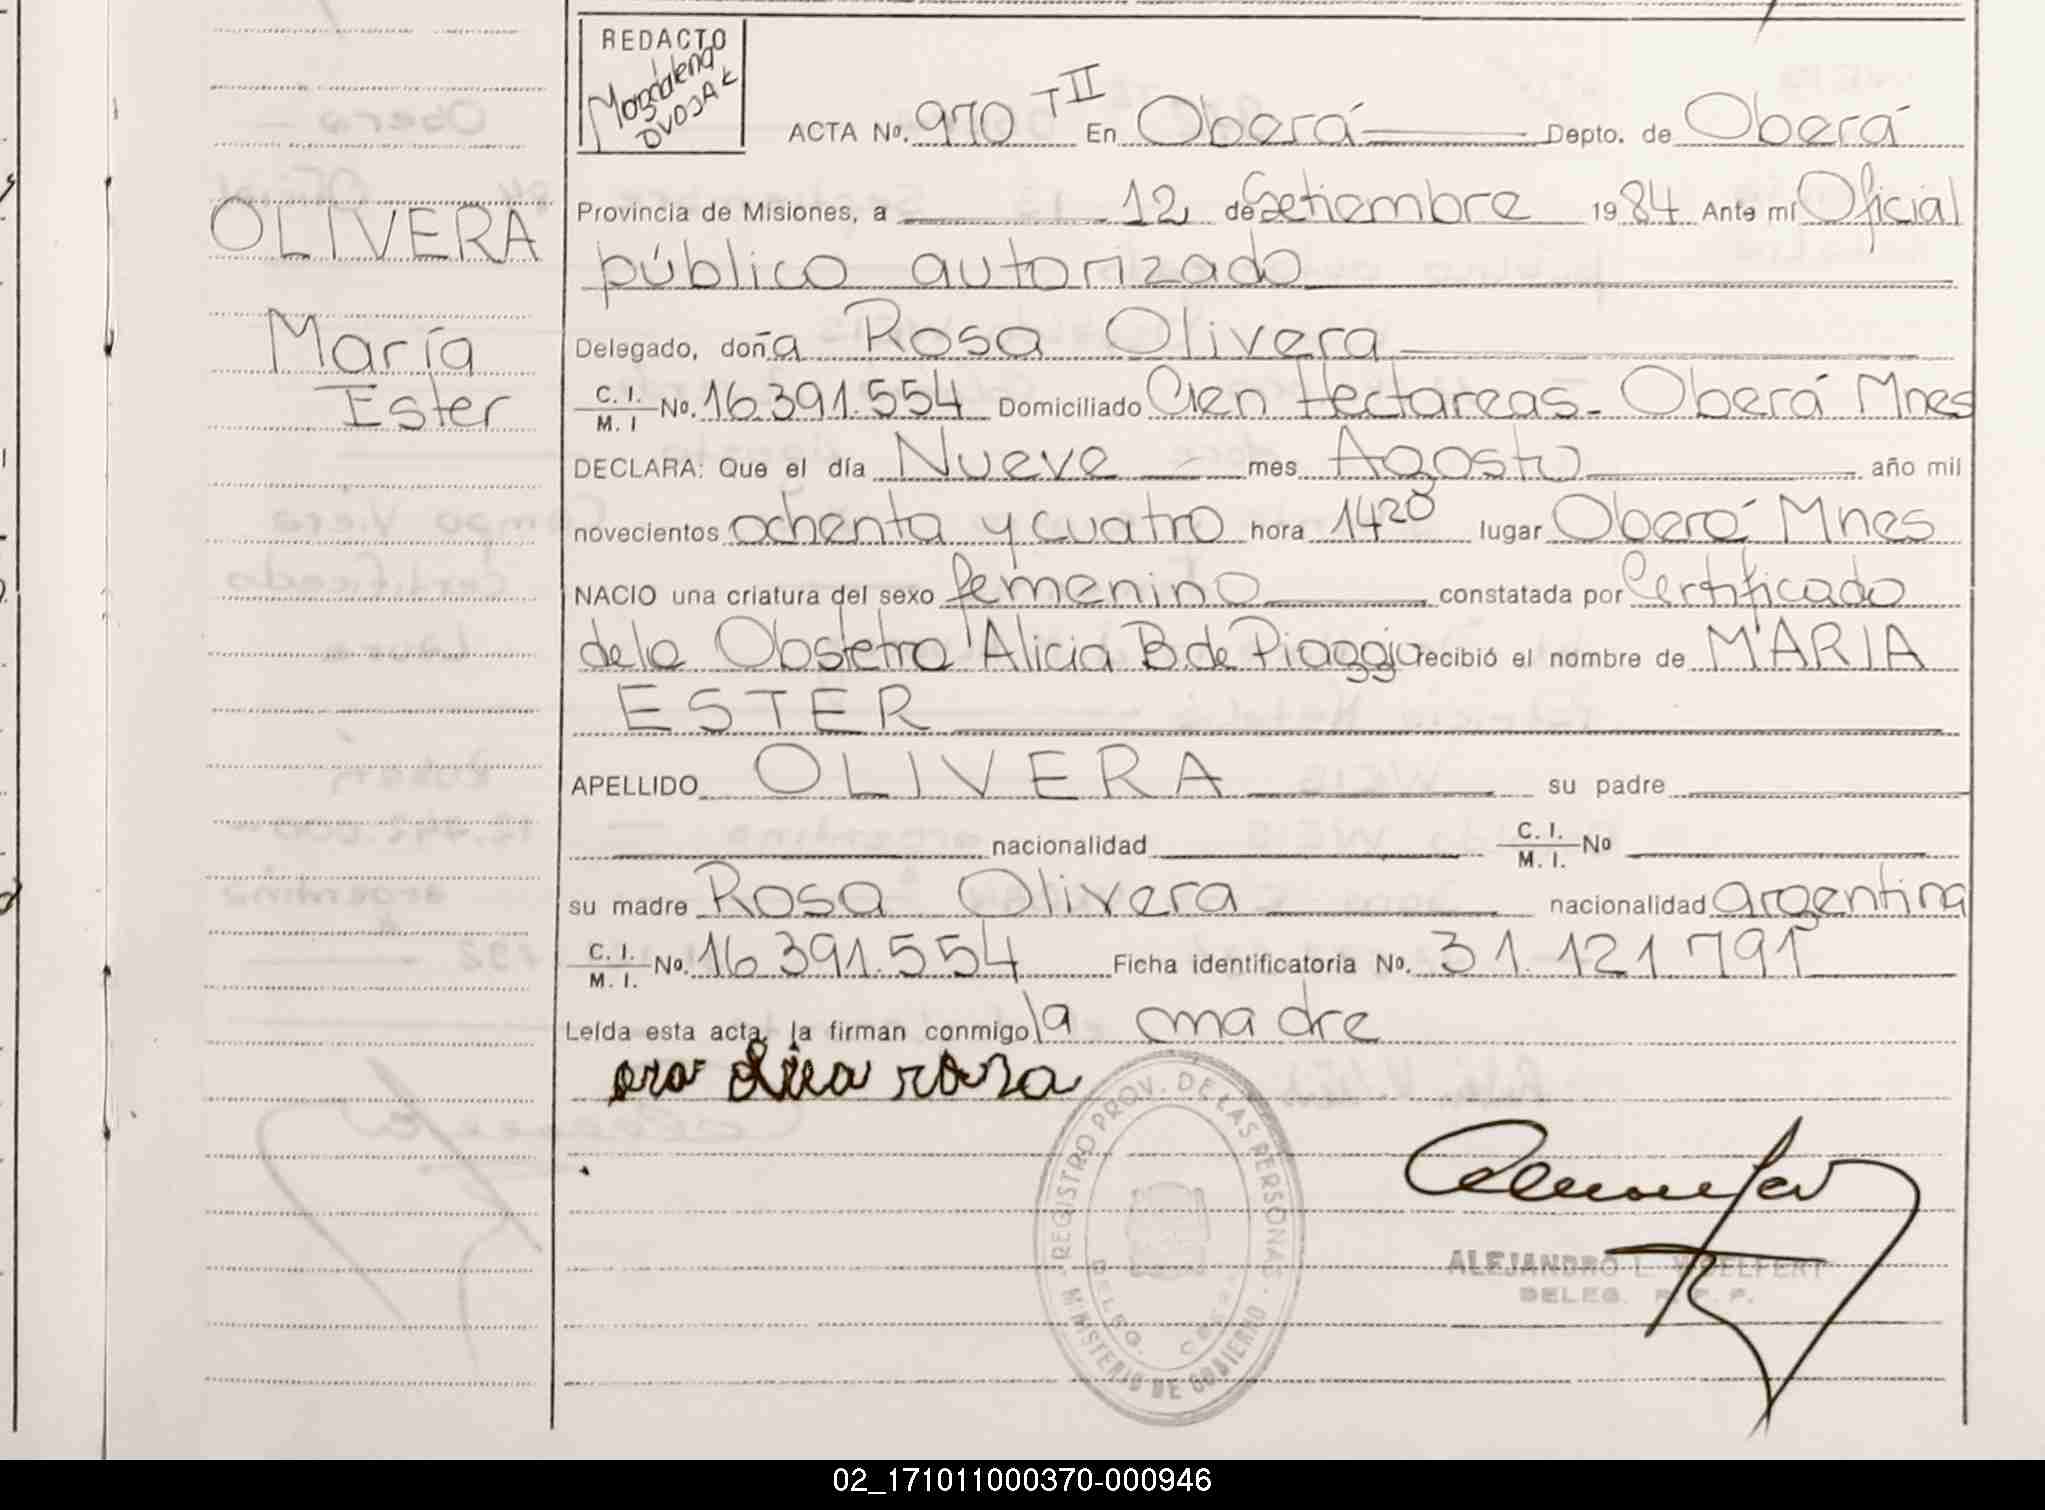 REDACTO
Magdalena
DVOJAK
ACTA No. 970 T II En Oberá Depto. de Oberá
OLIVERA
María
Ester
Provincia de Misiones, a 12 de Setiembre 1984 Ante mí Oficial
público autorizado
Delegado, doña Rosa Olivera
C. I. / M. I No. 16.391.554 Domiciliado Cien Hectareas - Oberá Mnes
DECLARA: Que el día Nueve mes Agosto año mil
novecientos ochenta y cuatro hora 14 20 lugar Oberá Mnes
NACIO una criatura del sexo femenino constatada por Certificado
de la Obstetra Alicia B. de Piaggio recibió el nombre de MARIA
ESTER
APELLIDO OLIVERA su padre
nacionalidad C. I. / M. I. No
su madre Rosa Olivera nacionalidad argentina
C. I. / M. I. No. 16.391.554 Ficha identificatoria No. 31.121.791
Leída esta acta, la firman conmigo la madre
rosa
REGISTRO PROV. DE LAS PERSONAS
MINISTERIO DE GOBIERNO
DELEG.
ALEJANDRO L.
DELEG. R. P. P.
02_171011000370-000946